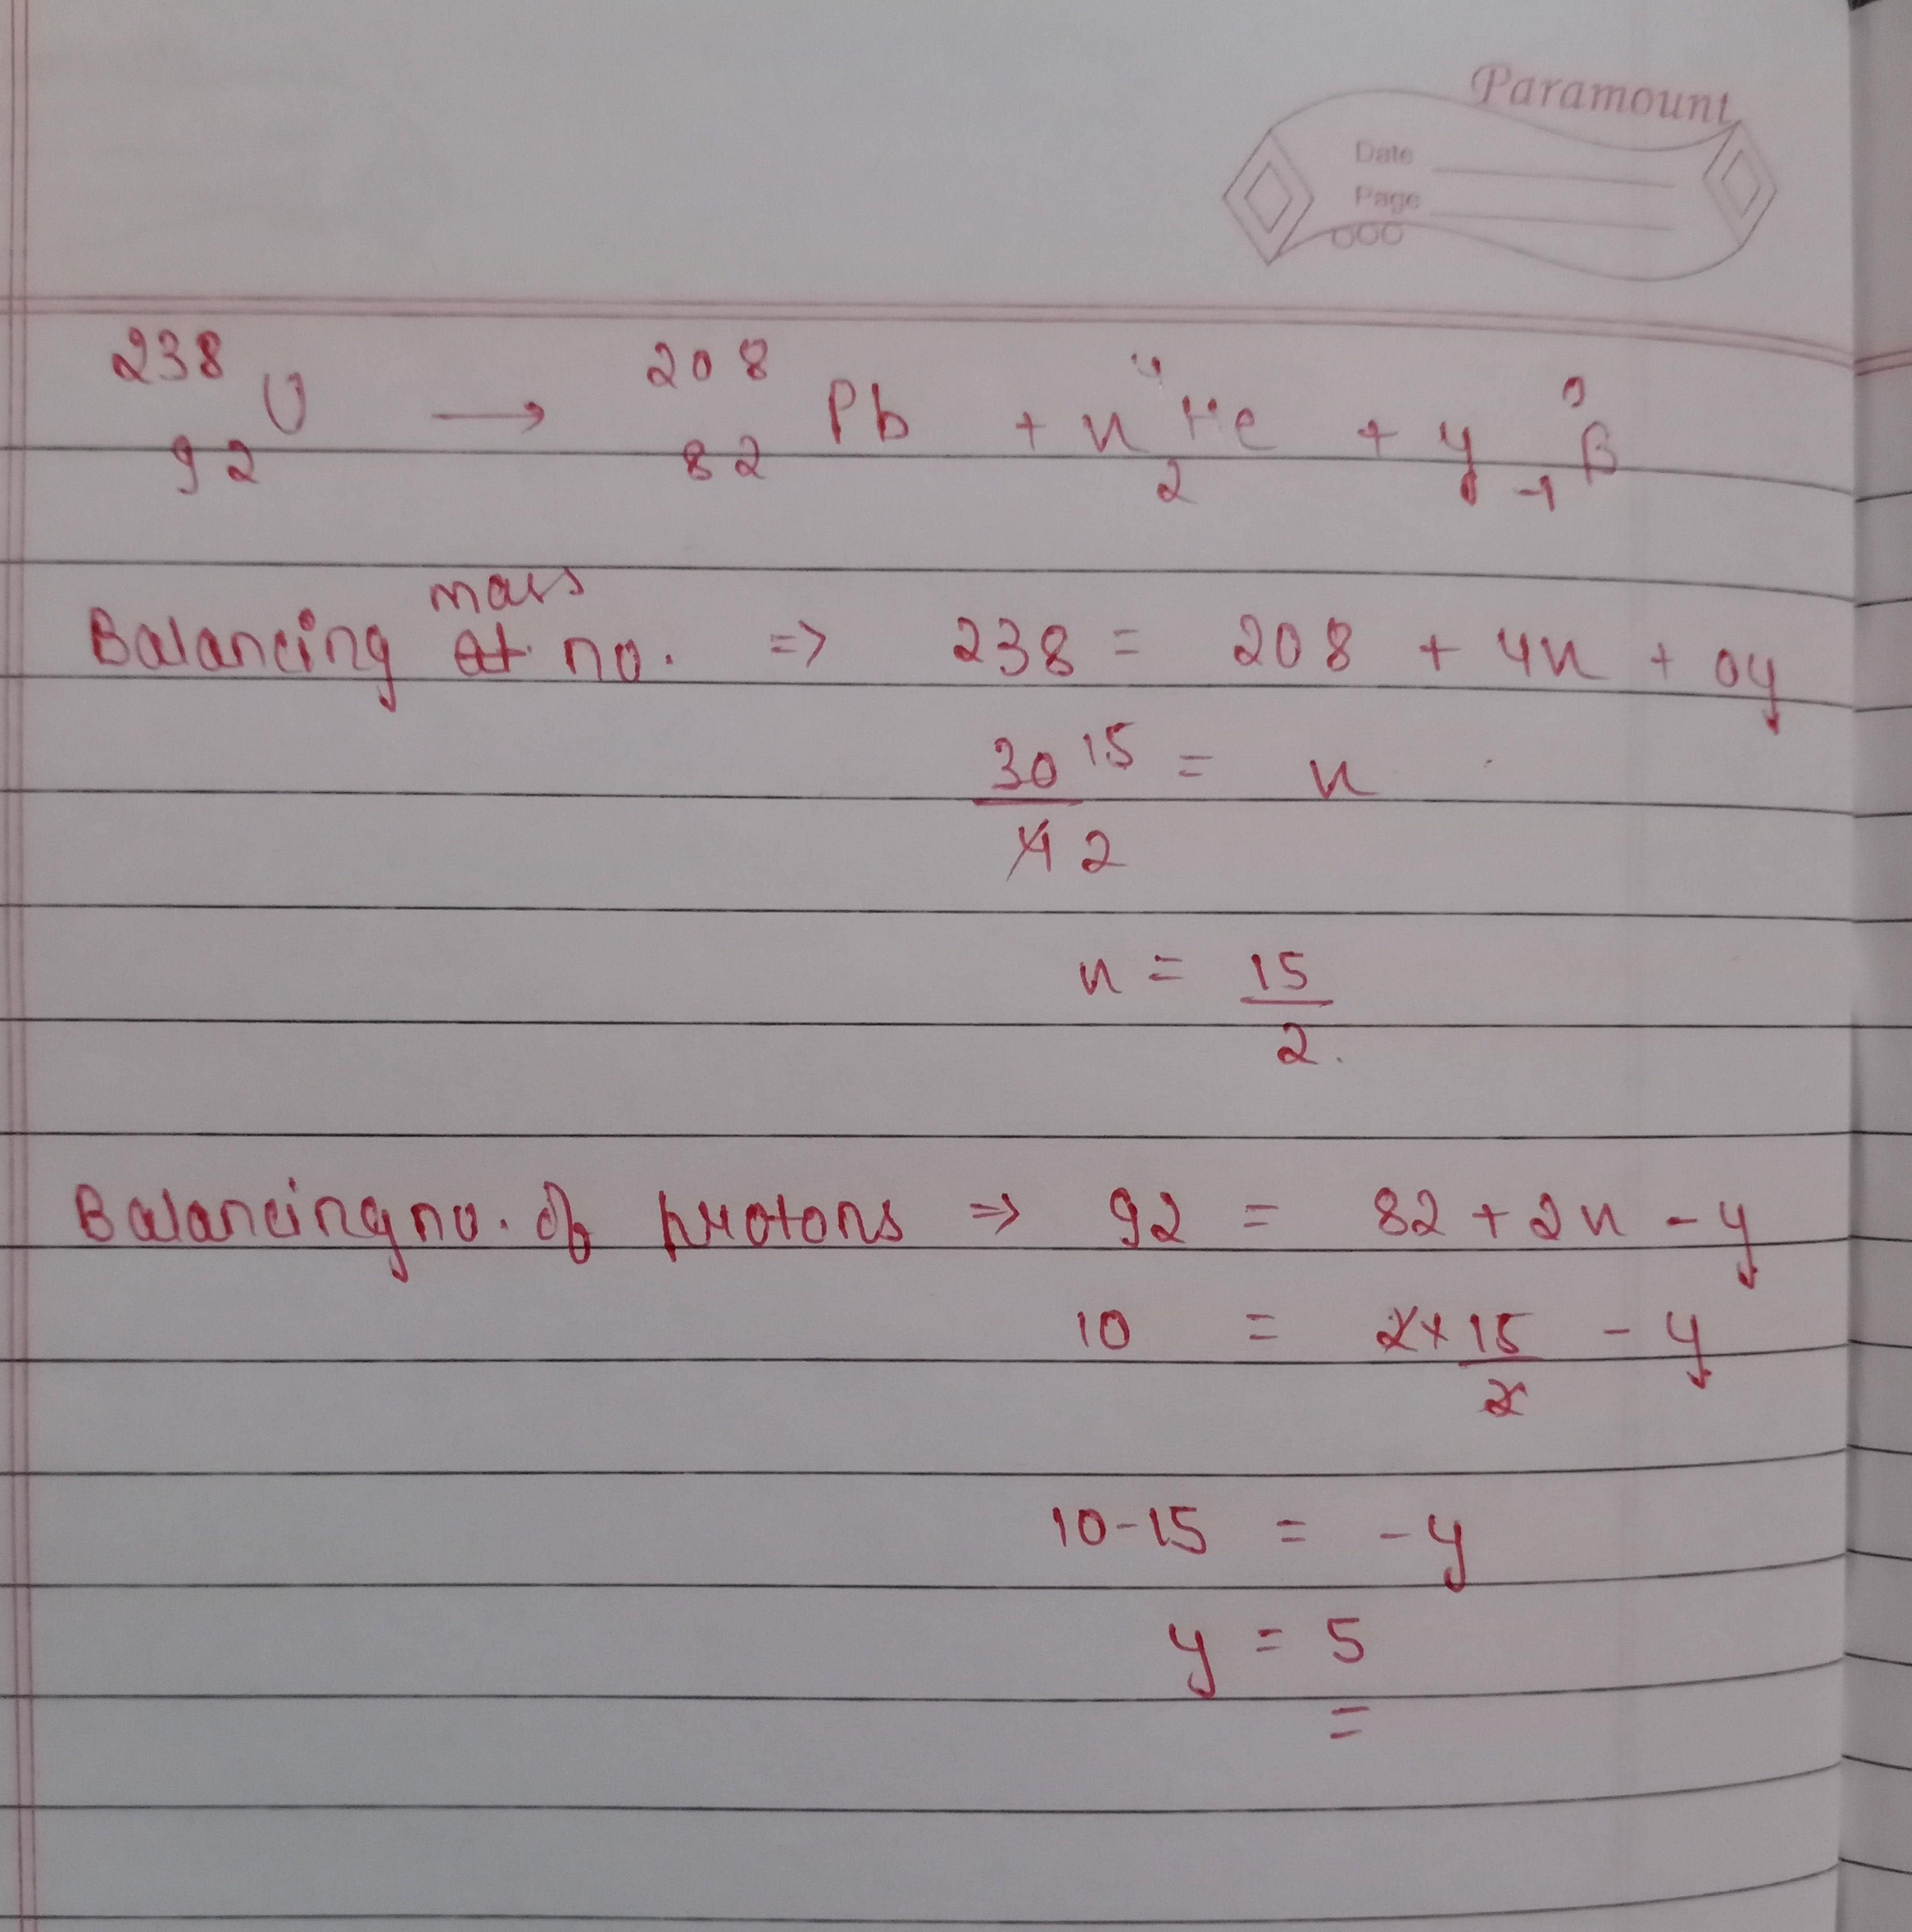 Paramount
Date
Page
238 U 92 → 208 Pb 82 + x 4 He 2 + y 0 β -1
Balancing at. mass no. => 238 = 208 + 4x + 0y
30 15 / 4 2 = x
x = 15 / 2.
Balancing no. of protons => 92 = 82 + 2x - y
10 = 2 × 15 / 2 - y
10 - 15 = - y
y = 5